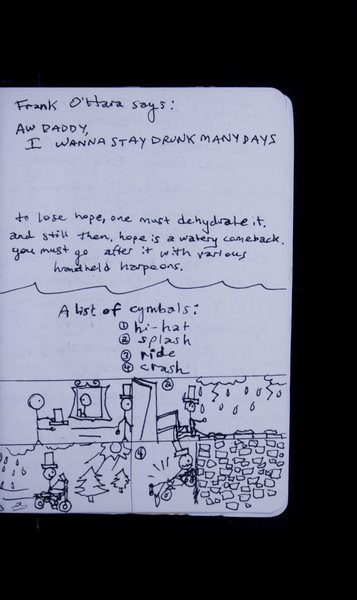 Frank O'Hara says:
AW DADDY,
I WANNA STAY DRUNK MANY DAYS
to lose hope, one must dehydrate it.
and still then, hope is a watery comeback.
you must go after it with various
handheld harpoons.
A list of cymbals:
① hi-hat
② splash
③ ride
④ crash
②
④